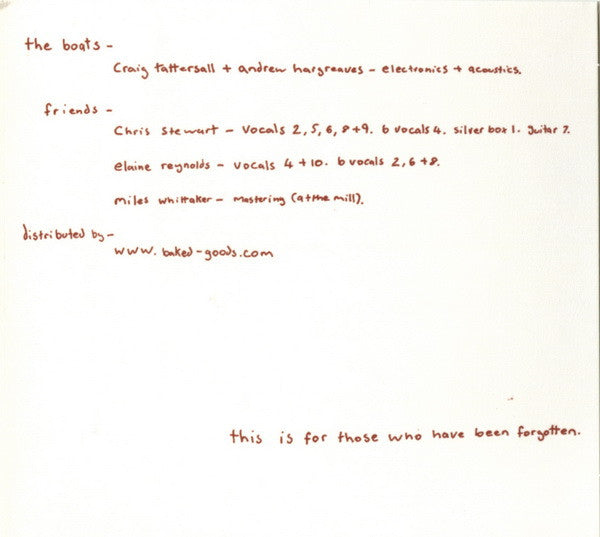 the boats -
Craig tattersall + andrew hargreaves - electronics + acoustics.
friends -
Chris stewart - vocals 2, 5, 6, 8 + 9. b vocals 4. silver box 1. guitar 7.
elaine reynolds - vocals 4 + 10. b vocals 2, 6 + 8.
miles whittaker - mastering (at the mill).
distributed by -
www.baked-goods.com
this is for those who have been forgotten.